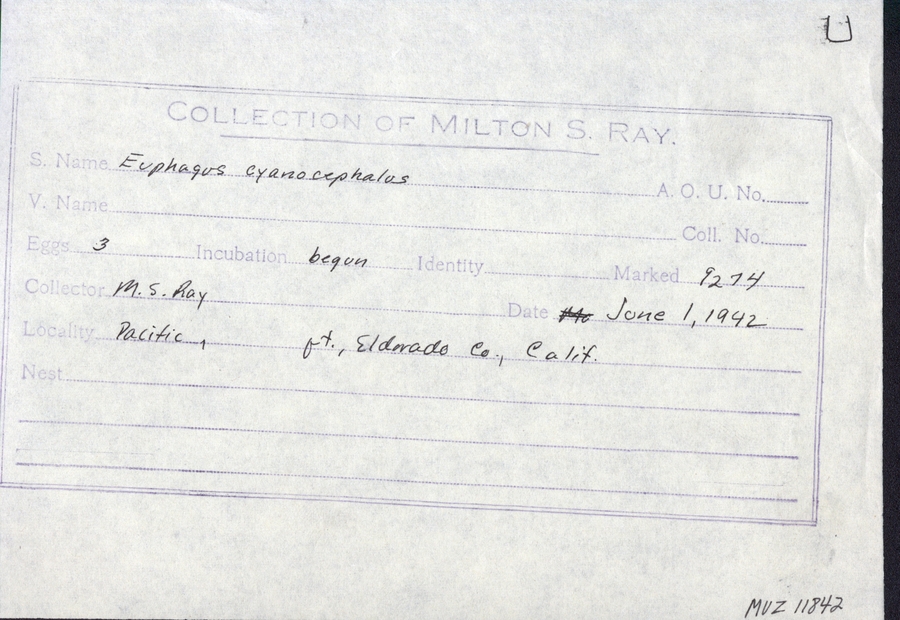 COLLECTION OF MILTON S. RAY.
S. Name Euphagus cyanocephalus A. O. U. No.
V. Name Coll. No.
Eggs 3 Incubation begun Identity Marked 9274
Collector M. S. Ray Date June 1, 1942
Locality Pacific, ft., Eldorado Co., Calif.
Nest
MVZ 11842